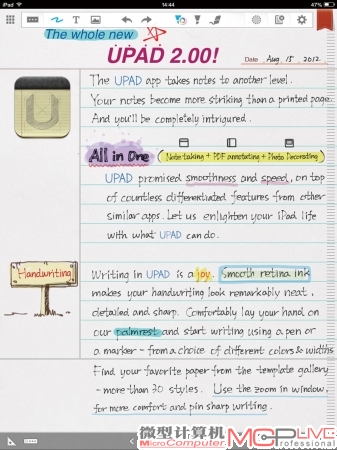 iPad
14:44
47%
The whole new XP
UPAD 2.00!
Date Aug. 15 2012
The UPAD app takes notes to another level.
Your notes become more striking than a printed page.
And you'll be completely intrigured.
All in One (Note taking + PDF annotating + Photo Decorating)
UPAD promised smoothness and speed, on top
of countless differentiated features from other
similar apps. Let us enlighten your iPad life
with what UPAD can do.
Handwriting
Writing in UPAD is a joy. Smooth retina ink
makes your handwriting look remarkably neat,
detailed and sharp. Comfortably lay your hand on
our palmrest and start writing using a pen or
a marker - from a choice of different colors & widths
Find your favorite paper from the template gallery
- more than 30 styles. Use the zoom in window,
for more comfort and pin sharp writing.
微型计算机 MCPLIVE
MicroComputer Professional